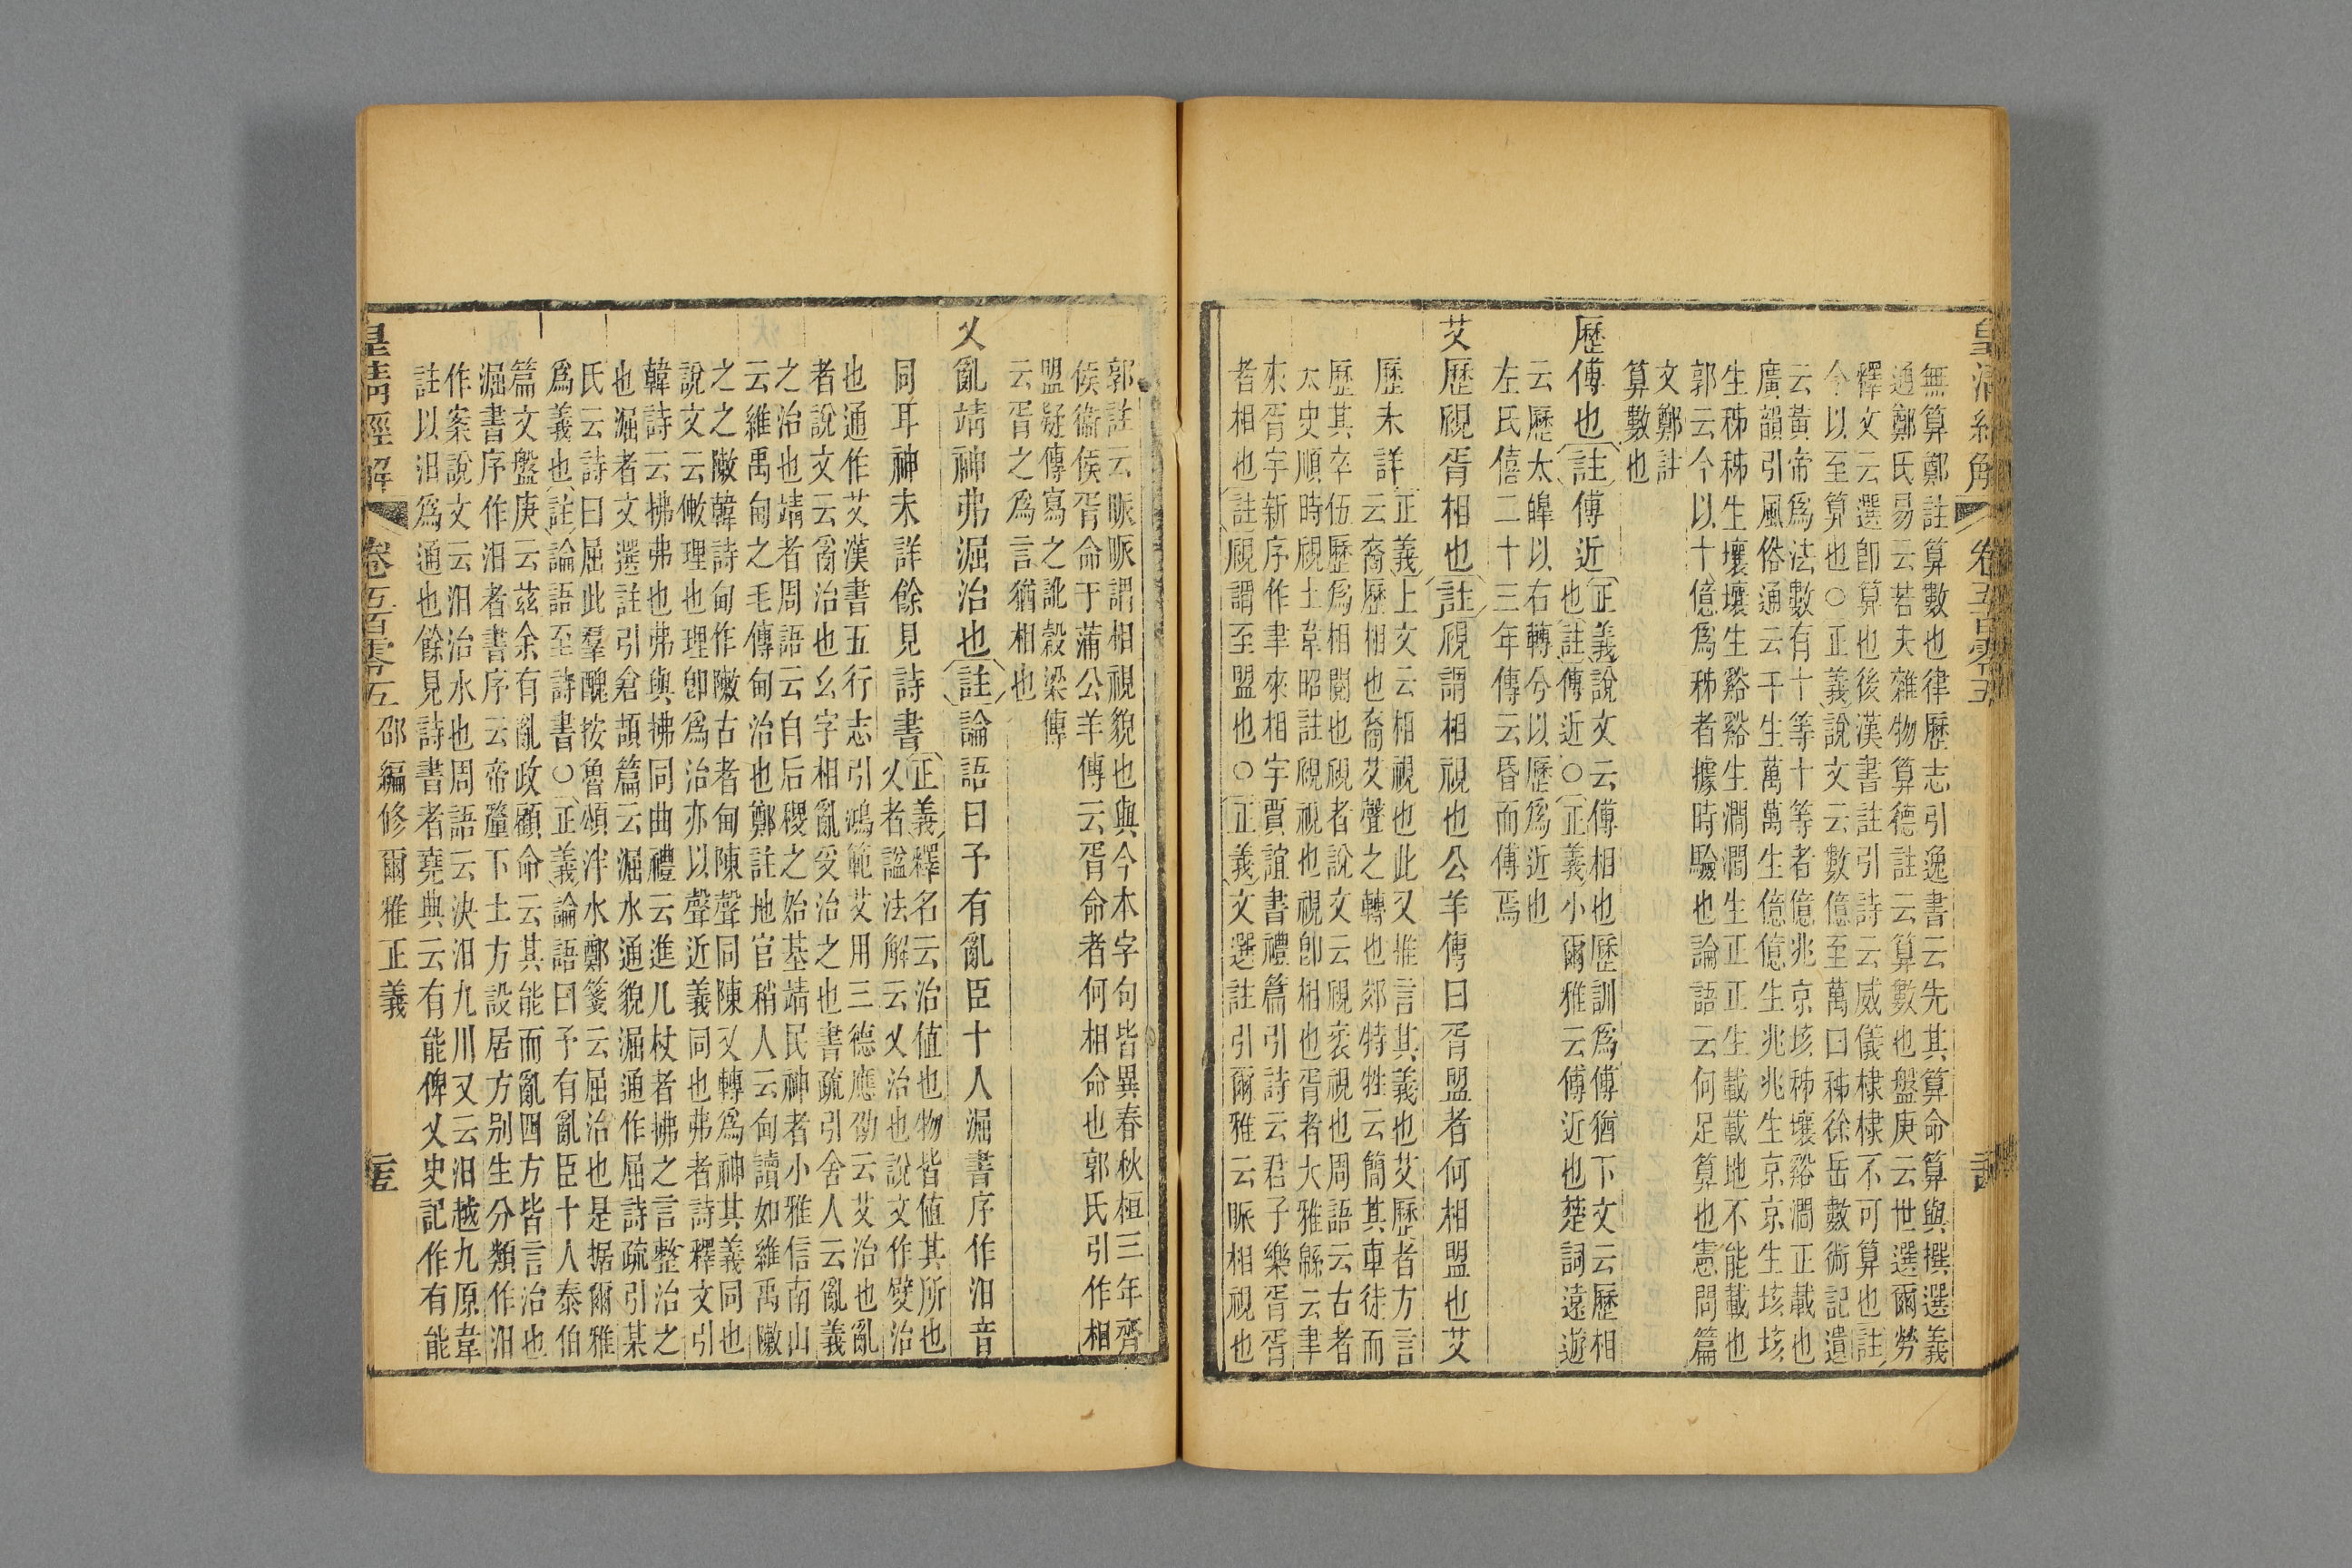 皇清經解
卷五百零五
無算鄭註算數也律歷志引逸書云先其算命算與撰選義
通鄭氏易云若夫雜物算德註云算數也盤庚云世選爾勞
釋文云選卽算也後漢書註引詩云威儀棣棣不可算也註
今以至算也○正義說文云數億至萬曰秭徐岳數術記遺
云黃帝爲法數有十等十等者億兆京垓秭壤谿澗正載也
廣韻引風俗通云千生萬萬生億億生兆兆生京京生垓垓
生秭秭生壤壤生谿谿生澗澗生正正生載載地不能載也
郭云今以十億爲秭者據時驗也論語云何足算也憲問篇
文鄭註
算數也
歷傅也註傅近
正義說文云傅相也歷訓爲傅猶下文云歷相
也註傅近○正義小爾雅云傅近也楚詞遠遊
云歷太皞以右轉兮以歷爲近也
左氏僖二十三年傳云昏而傅焉
艾歷覛胥相也註覛謂相視也公羊傳曰胥盟者何相盟也艾
歷未詳
正義上文云相視也此又推言其義也艾歷者方言
云裔歷相也裔艾聲之轉也郊特牲云簡其車徒而
歷其卒伍歷爲相閱也覛者說文云覛衺視也周語云古者
太史順時覛土韋昭註覛視也視卽相也胥者大雅緜云聿
來胥宇新序作聿來相宇賈誼書禮篇引詩云君子樂胥胥
者相也註覛謂至盟也○正義文選註引爾雅云眽相視也
郭註云眽眽謂相視貌也與今本字句皆異春秋桓三年齊
侯衞侯胥命于蒲公羊傳云胥命者何相命也郭氏引作相
盟疑傳寫之訛穀梁傳
云胥之爲言猶相也
乂亂靖神弗淈治也註論語曰予有亂臣十人淈書序作汨音
同耳神未詳餘見詩書
正義釋名云治値也物皆値其所也
乂者謚法解云乂治也說文作嬖治
也通作艾漢書五行志引鴻範艾用三德應劭云艾治也亂
者說文云𤔔治也幺字相亂受治之也書疏引舍人云亂義
之治也靖者周語云自后稷之始基靖民神者小雅信南山
云維禹甸之毛傳甸治也鄭註地官稍人云甸讀如維禹敶
之之敶韓詩甸作敶古者甸陳聲同陳又轉爲神其義同也
說文云敒理也理卽爲治亦以聲近義同也弗者詩釋文引
韓詩云拂弗也弗與拂同曲禮云進几杖者拂之言整治之
也淈者文選註引倉頡篇云淈水通貌淈通作屈詩疏引某
氏云詩曰屈此羣醜按魯頌泮水鄭箋云屈治也是据爾雅
爲義也註論語至詩書○正義論語曰予有亂臣十人泰伯
篇文盤庚云茲余有亂政顧命云其能而亂四方皆言治也
淈書序作汨者書序云帝釐下土方設居方别生分類作汨
作案說文云汨治水也周語云決汨九川又云汨越九原韋
註以汨爲通也餘見詩書者堯典云有能俾乂史記作有能
皇清經解
卷五百零五
邵編修爾雅正義